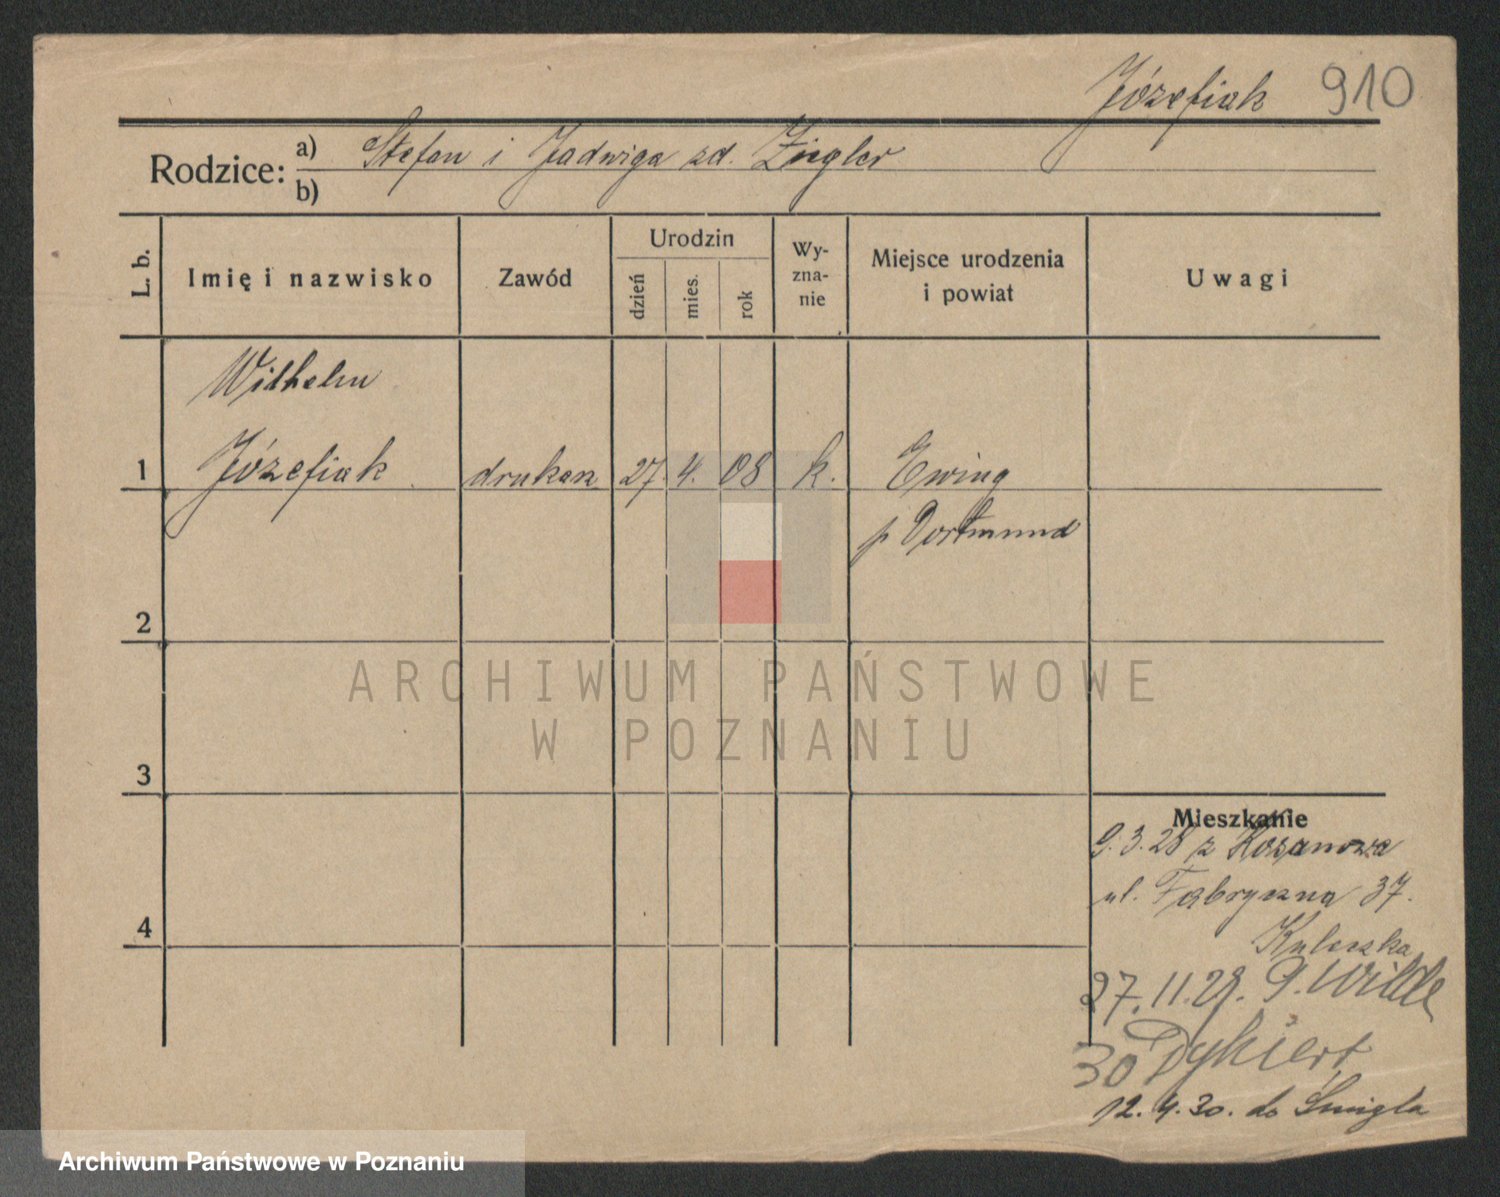 Józefiak 910
Rodzice: a) Stefan i Jadwiga zd. Ziegler
b)
L. b.
Imię i nazwisko
Zawód
Urodzin
dzień
mies.
rok
Wy-
zna-
nie
Miejsce urodzenia
i powiat
Uwagi
Wilhelm
1 Józefiak drukarz 27. 4. 08 k. Ewing
p Dortmund
2
ARCHIWUM PAŃSTWOWE
W POZNANIU
3
Mieszkanie
9.3.28 z
ul. Fabryczna 37.
4
Kuleszka
27.11.29. G. Wilde
30 Dykiert
12.4.30. do Śmigla
Archiwum Państwowe w Poznaniu